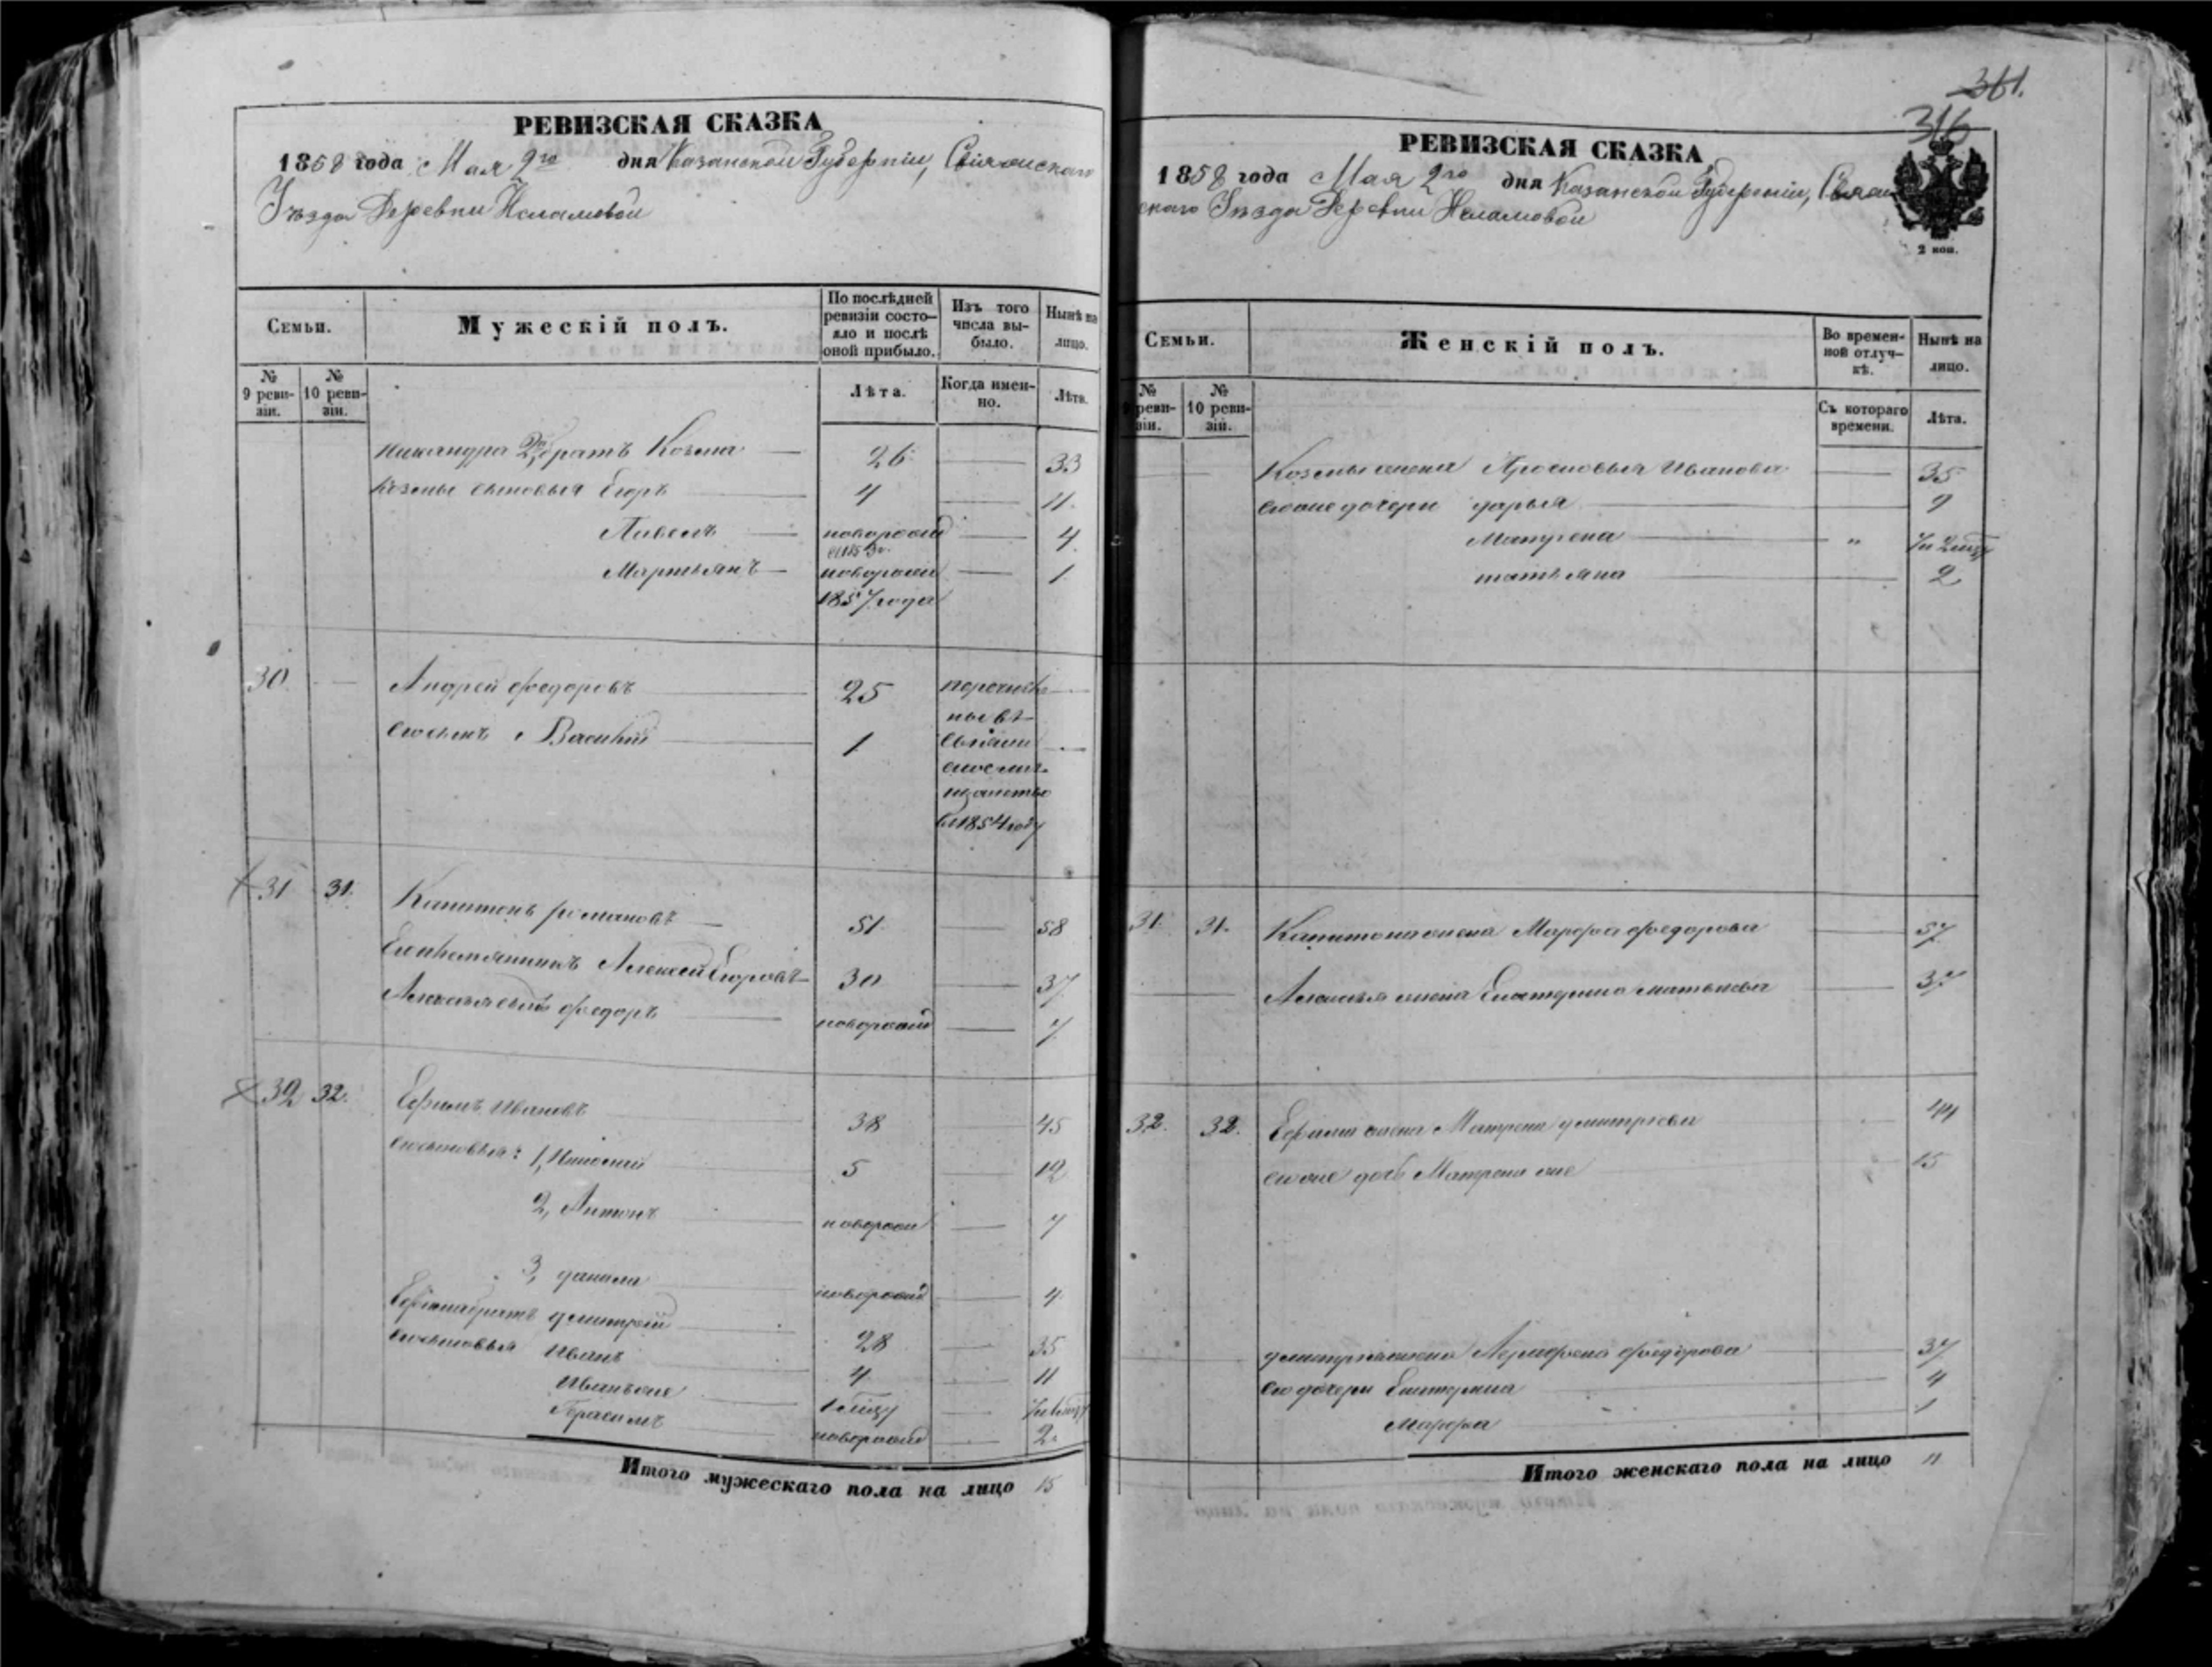 РЕВИЗСКАЯ СКАЗКА
1858 года Мая 2го дня Казанской Губерніи, Свіяжскаго
Уезда Деревни
Семьи.
Мужескій полъ.
По послѣдней ревизіи состояло и послѣ оной прибыло.
Изъ того числа выбыло.
Нынѣ на лицо.
№ 9 ревизіи.
№ 10 ревизіи.
Лѣта.
Когда именно.
Лѣта.
Никандра 2й братъ Козма 26 33
Козмы сыновья Егоръ 4 11
Павелъ новорож 4
Мартьянъ новорож 1
1857 года
30 Андрей Федоровъ 25
его сынъ Василий 1
в 1854 году
31 31. Капитонъ Романовъ 51 58
Его племянникъ Алексей Егоровъ 30 37
Алексея сынъ Федоръ новорож 7
32 32. Ефимъ Ивановъ 38 45
его сыновья: 1, 5 12
2, Антонъ новорож 7
3, данила новорож 4
Ефима братъ дмитрей 28 35
его сыновья Иванъ 4 11
Иванъ же
Герасимъ новорож 2
Итого мужескаго пола на лицо 15
361.
316
РЕВИЗСКАЯ СКАЗКА
1858 года Мая 2го дня Казанской Губерніи, Свіяж
скаго Уезда Деревни
2 коп.
Семьи.
Женскій полъ.
Во временной отлучкѣ.
Нынѣ на лицо.
№ 9 ревизіи.
№ 10 ревизіи.
Съ котораго времени.
Лѣта.
Козмы жена Иванова 35
его же дочери дарья 9
Матрена
татьяна 2
31. 31. Капитона жена Марфа Федорова 57
Алексея жена Екатерина Матвеева 37
32. 32. Ефима жена Матрена дмитриева 44
его же дочь Матрена же 15
дмитрия жена Федорова 37
его дочери Екатерина 4
Марфа 1
Итого женскаго пола на лицо 11